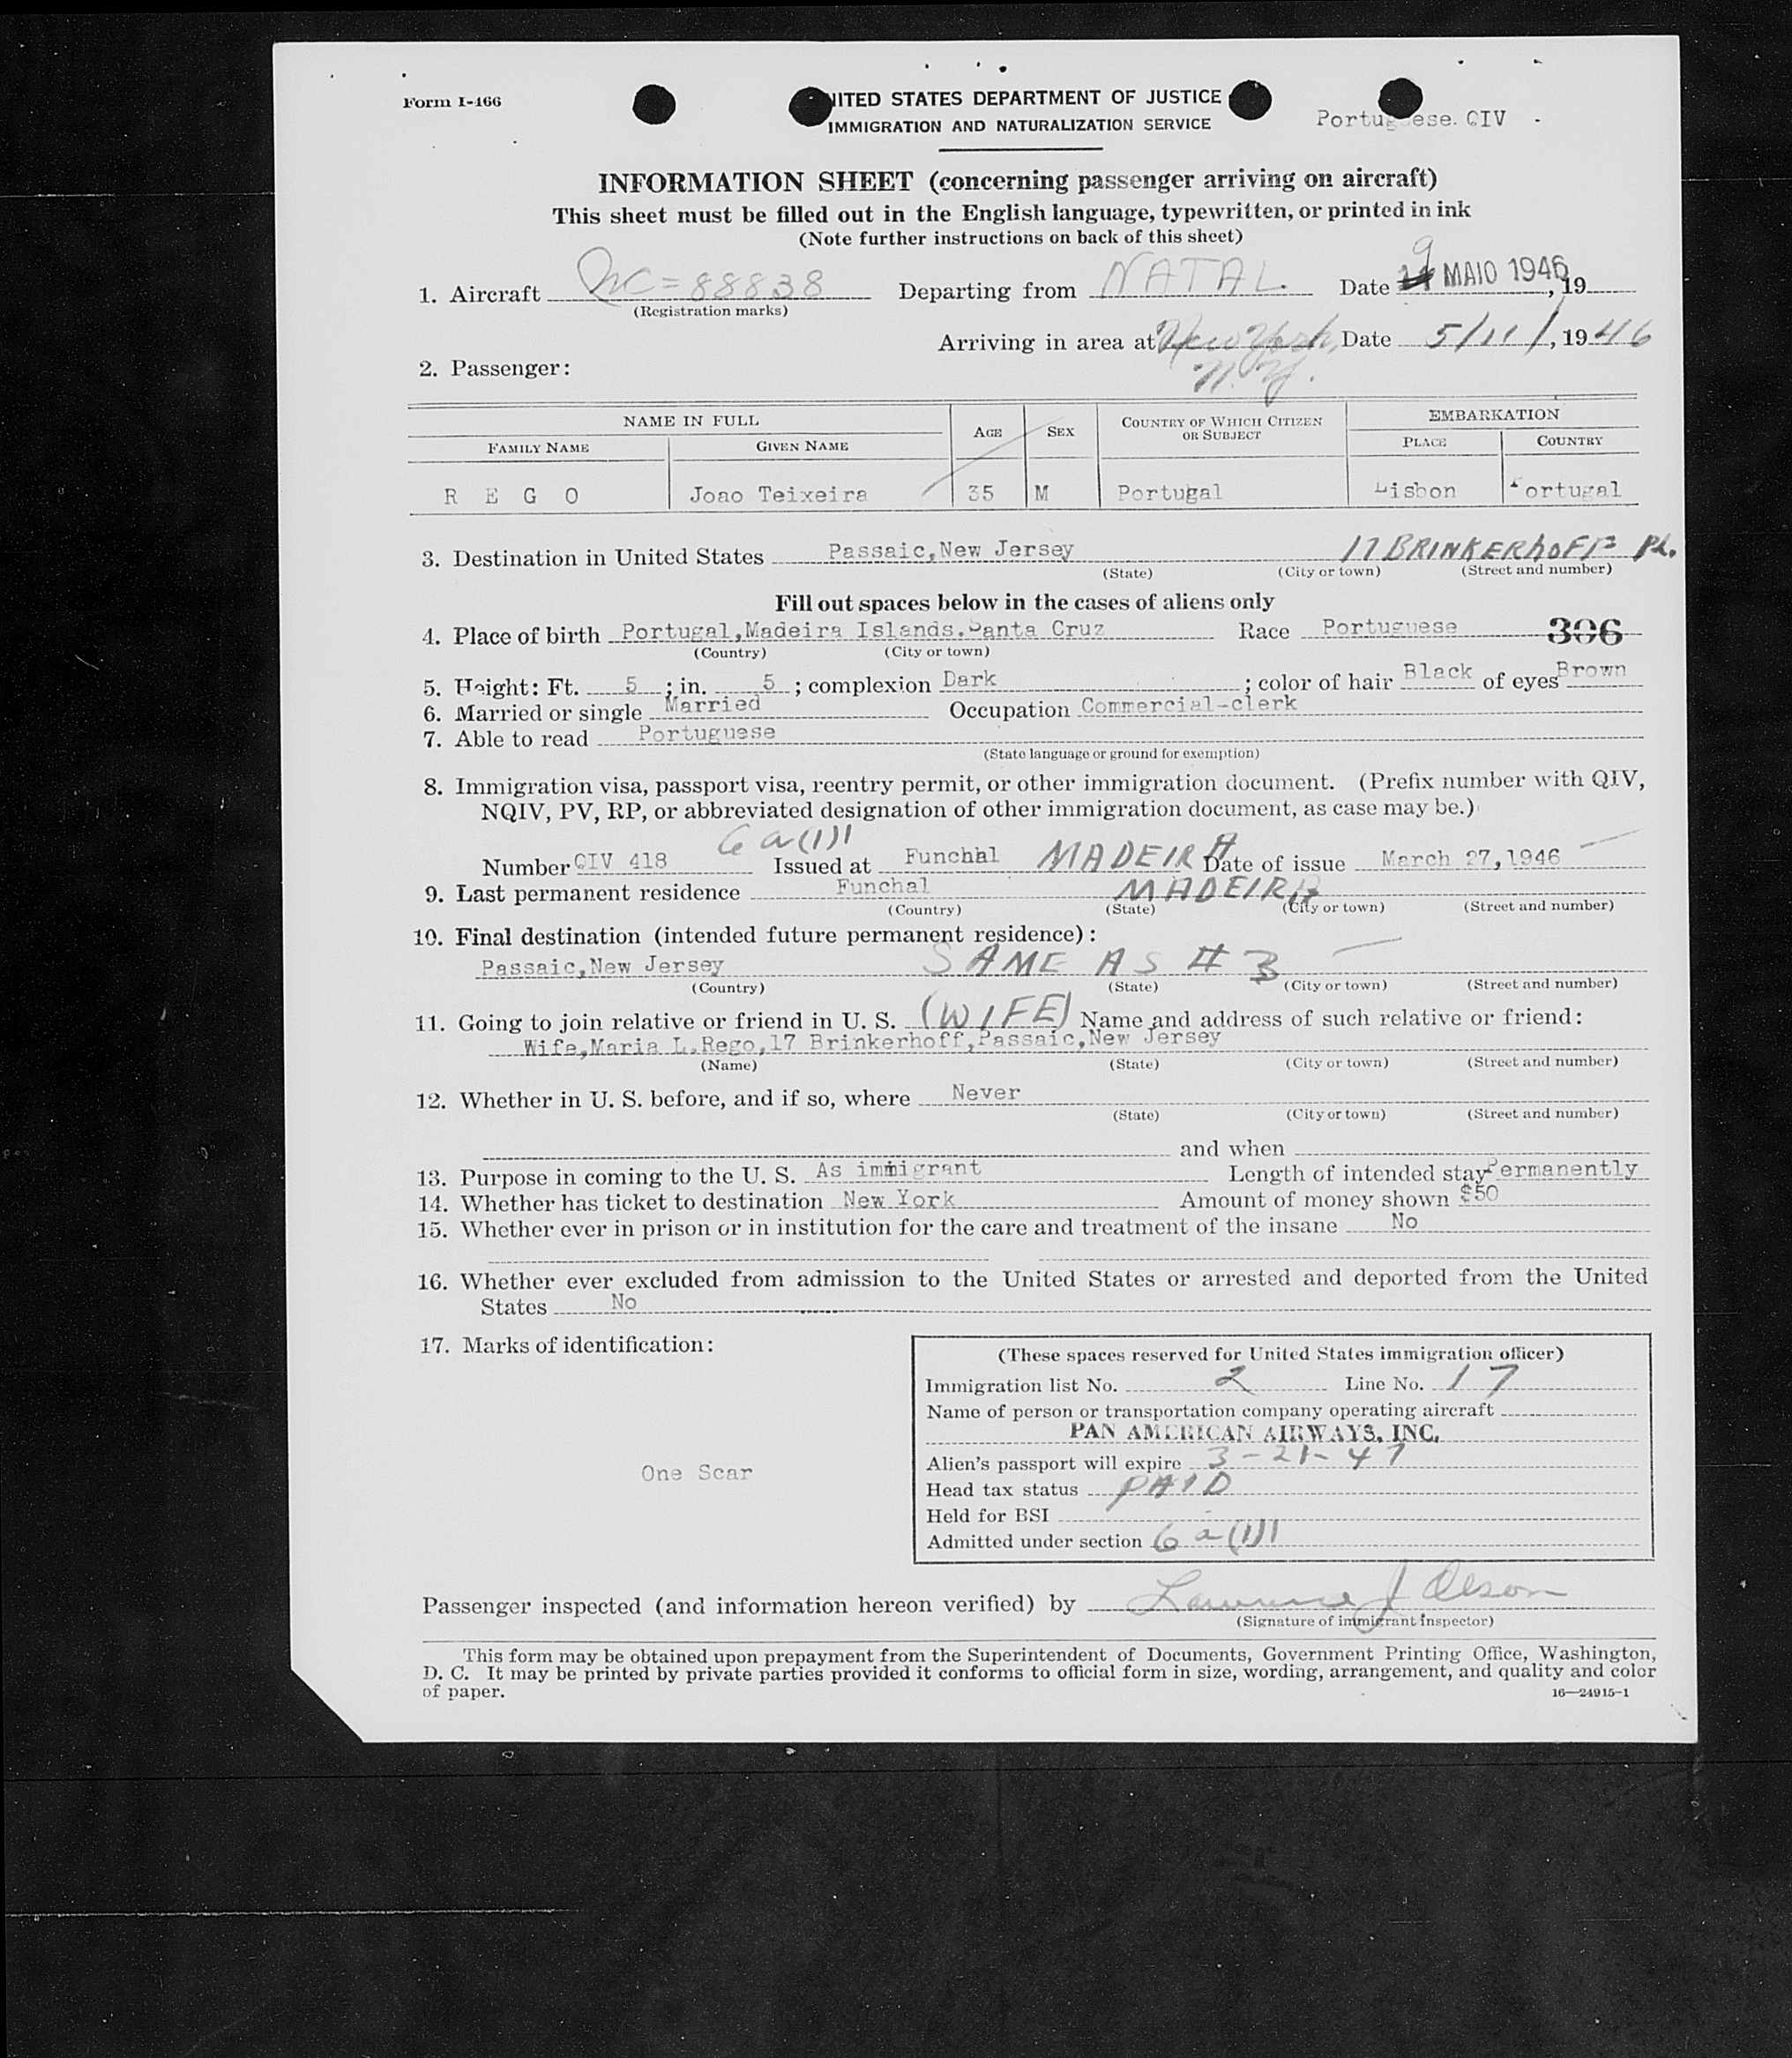 Form I-466
UNITED STATES DEPARTMENT OF JUSTICE
IMMIGRATION AND NATURALIZATION SERVICE
Portuguese. QIV
INFORMATION SHEET (concerning passenger arriving on aircraft)
This sheet must be filled out in the English language, typewritten, or printed in ink
(Note further instructions on back of this sheet)
1. Aircraft NC=88838 Departing from NATAL Date 9 MAIO 1946, 19
(Registration marks)
Arriving in area at New York, Date 5/11/, 1946
N.Y.
2. Passenger:
NAME IN FULL AGE SEX COUNTRY OF WHICH CITIZEN OR SUBJECT EMBARKATION
FAMILY NAME GIVEN NAME PLACE COUNTRY
R E G O Joao Teixeira 35 M Portugal Lisbon Portugal
3. Destination in United States Passaic,New Jersey 17 BRINKERhOFF PL.
(State) (City or town) (Street and number)
Fill out spaces below in the cases of aliens only
4. Place of birth Portugal,Madeira Islands.Santa Cruz Race Portuguese 306
(Country) (City or town)
5. Height: Ft. 5 ; in. 5 ; complexion Dark ; color of hair Black of eyes Brown
6. Married or single Married Occupation Commercial-clerk
7. Able to read Portuguese
(State language or ground for exemption)
8. Immigration visa, passport visa, reentry permit, or other immigration document. (Prefix number with QIV,
NQIV, PV, RP, or abbreviated designation of other immigration document, as case may be.)
6 a(1)1
Number QIV 418 Issued at Funchal MADEIRA Date of issue March 27,1946
9. Last permanent residence Funchal MADEIRA
(Country) (State) (City or town) (Street and number)
10. Final destination (intended future permanent residence):
Passaic,New Jersey SAME AS # 3
(Country) (State) (City or town) (Street and number)
11. Going to join relative or friend in U. S. (WIFE) Name and address of such relative or friend:
Wife,Maria L.Rego,17 Brinkerhoff,Passaic,New Jersey
(Name) (State) (City or town) (Street and number)
12. Whether in U. S. before, and if so, where Never
(State) (City or town) (Street and number)
and when
13. Purpose in coming to the U. S. As immigrant Length of intended stay Permanently
14. Whether has ticket to destination New York Amount of money shown $50
15. Whether ever in prison or in institution for the care and treatment of the insane No
16. Whether ever excluded from admission to the United States or arrested and deported from the United
States No
17. Marks of identification:
One Scar
(These spaces reserved for United States immigration officer)
Immigration list No. 2 Line No. 17
Name of person or transportation company operating aircraft
PAN AMERICAN AIRWAYS, INC.
Alien's passport will expire 3-21-47
Head tax status PAID
Held for BSI
Admitted under section 6 a (1)1
Passenger inspected (and information hereon verified) by Lawrence J Olson
(Signature of immigrant inspector)
This form may be obtained upon prepayment from the Superintendent of Documents, Government Printing Office, Washington,
D. C. It may be printed by private parties provided it conforms to official form in size, wording, arrangement, and quality and color
of paper.
16—24915-1